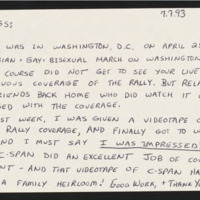 7.7.93
SS:
WAS IN WASHINGTON, D.C. ON APRIL 25
BIAN • GAY • BISEXUAL MARCH ON WASHINGTON
COURSE DID NOT GET TO SEE YOUR LIVE
UOUS COVERAGE OF THE RALLY. BUT RELA
RIENDS BACK HOME WHO DID WATCH IT
SED WITH THE COVERAGE.
ST WEEK, I WAS GIVEN A VIDEOTAPE O
RALLY COVERAGE, AND FINALLY GOT TO W
ND I MUST SAY I WAS IMPRESSED!
C-SPAN DID AN EXCELLENT JOB OF COV
NT - AND THAT VIDEOTAPE OF C-SPAN HA
A FAMILY HEIRLOOM! GOOD WORK, + THANK Y